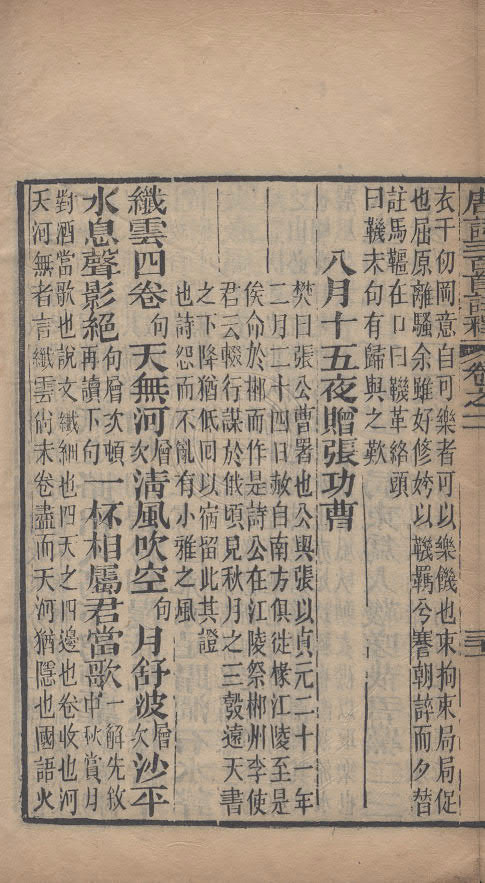 唐詩三百首註釋 卷之二 三十
衣千仞岡意自可樂者可以樂饑也束拘束局局促
也屈原離騷余雖好修姱以鞿羈兮謇朝誶而夕替
註馬韁在口曰鞿革絡頭
曰羈末句有歸與之歎
八月十五夜贈張功曹
樊曰張公曹署也公與張以貞元二十一年
二月二十四日赦自南方俱徙掾江陵至是
俟命於郴而作是詩公在江陵祭郴州李使
君云輟行謀於俄頃見秋月之三彀遠天書
之下降猶低回以宿留此其證
也詩怨而不亂有小雅之風
纖雲四卷句天無河層次清風吹空句月舒波層次沙平
水息聲影絕句層次頓再讀下句一杯相屬君當歌一解先敘中秋賞月
對酒當歌也說文纖細也四天之四邊也卷收也河
天河無者言纖雲尙未卷盡而天河猶隱也國語火